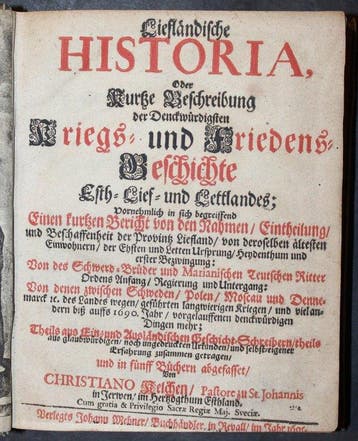 Liefländische
HISTORIA,
Oder
Kurtze Beschreibung
der Denckwürdigsten
Kriegs- und Friedens-
Geschichte
Esth- Lief- und Lettlandes;
Vornehmlich in sich begreiffend
Einen kurtzen Bericht von den Nahmen / Eintheilung /
und Beschaffenheit der Provintz Liefland / von deroselben ältesten
Einwohnern / der Ehsten und Letten Ursprung / Heydenthum und
erster Bezwingung;
Von des Schwerd-Brüder und Marianischen Teutschen Ritter
Ordens Anfang / Regierung und Untergang:
Von denen zwischen Schweden / Polen / Moscau und Denne-
marck ec. des Landes wegen / geführten langwierigen Kriegen / und viel an-
dern biß auffs 1690. Jahr / vorgelauffenen denckwürdigen
Dingen mehr;
Theils aus Ein- und Ausländischen Geschicht-Schreibern / theils
aus glaubwürdigen / noch ungedruckten Urkunden / und selbst-eigener
Erfahrung zusammen getragen /
und in fünff Büchern abgefasset /
Von
CHRISTIANO Kelchen / Pastore zu St. Johannis
in Jerwen / im Hertzogthum Esthland.
Cum gratia & Privilegio Sacræ Regiæ Maj. Sveciæ.
Verlegts Johann Mehner / Buchhändler. in Revall / im Jahr 1695.